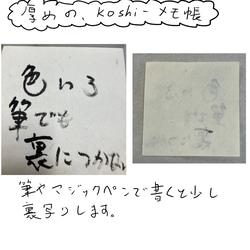 厚めの、koshi-メモ帳
色いろ
筆でも
裏につかない
筆やマジックペンで書くと少し
裏写りします。